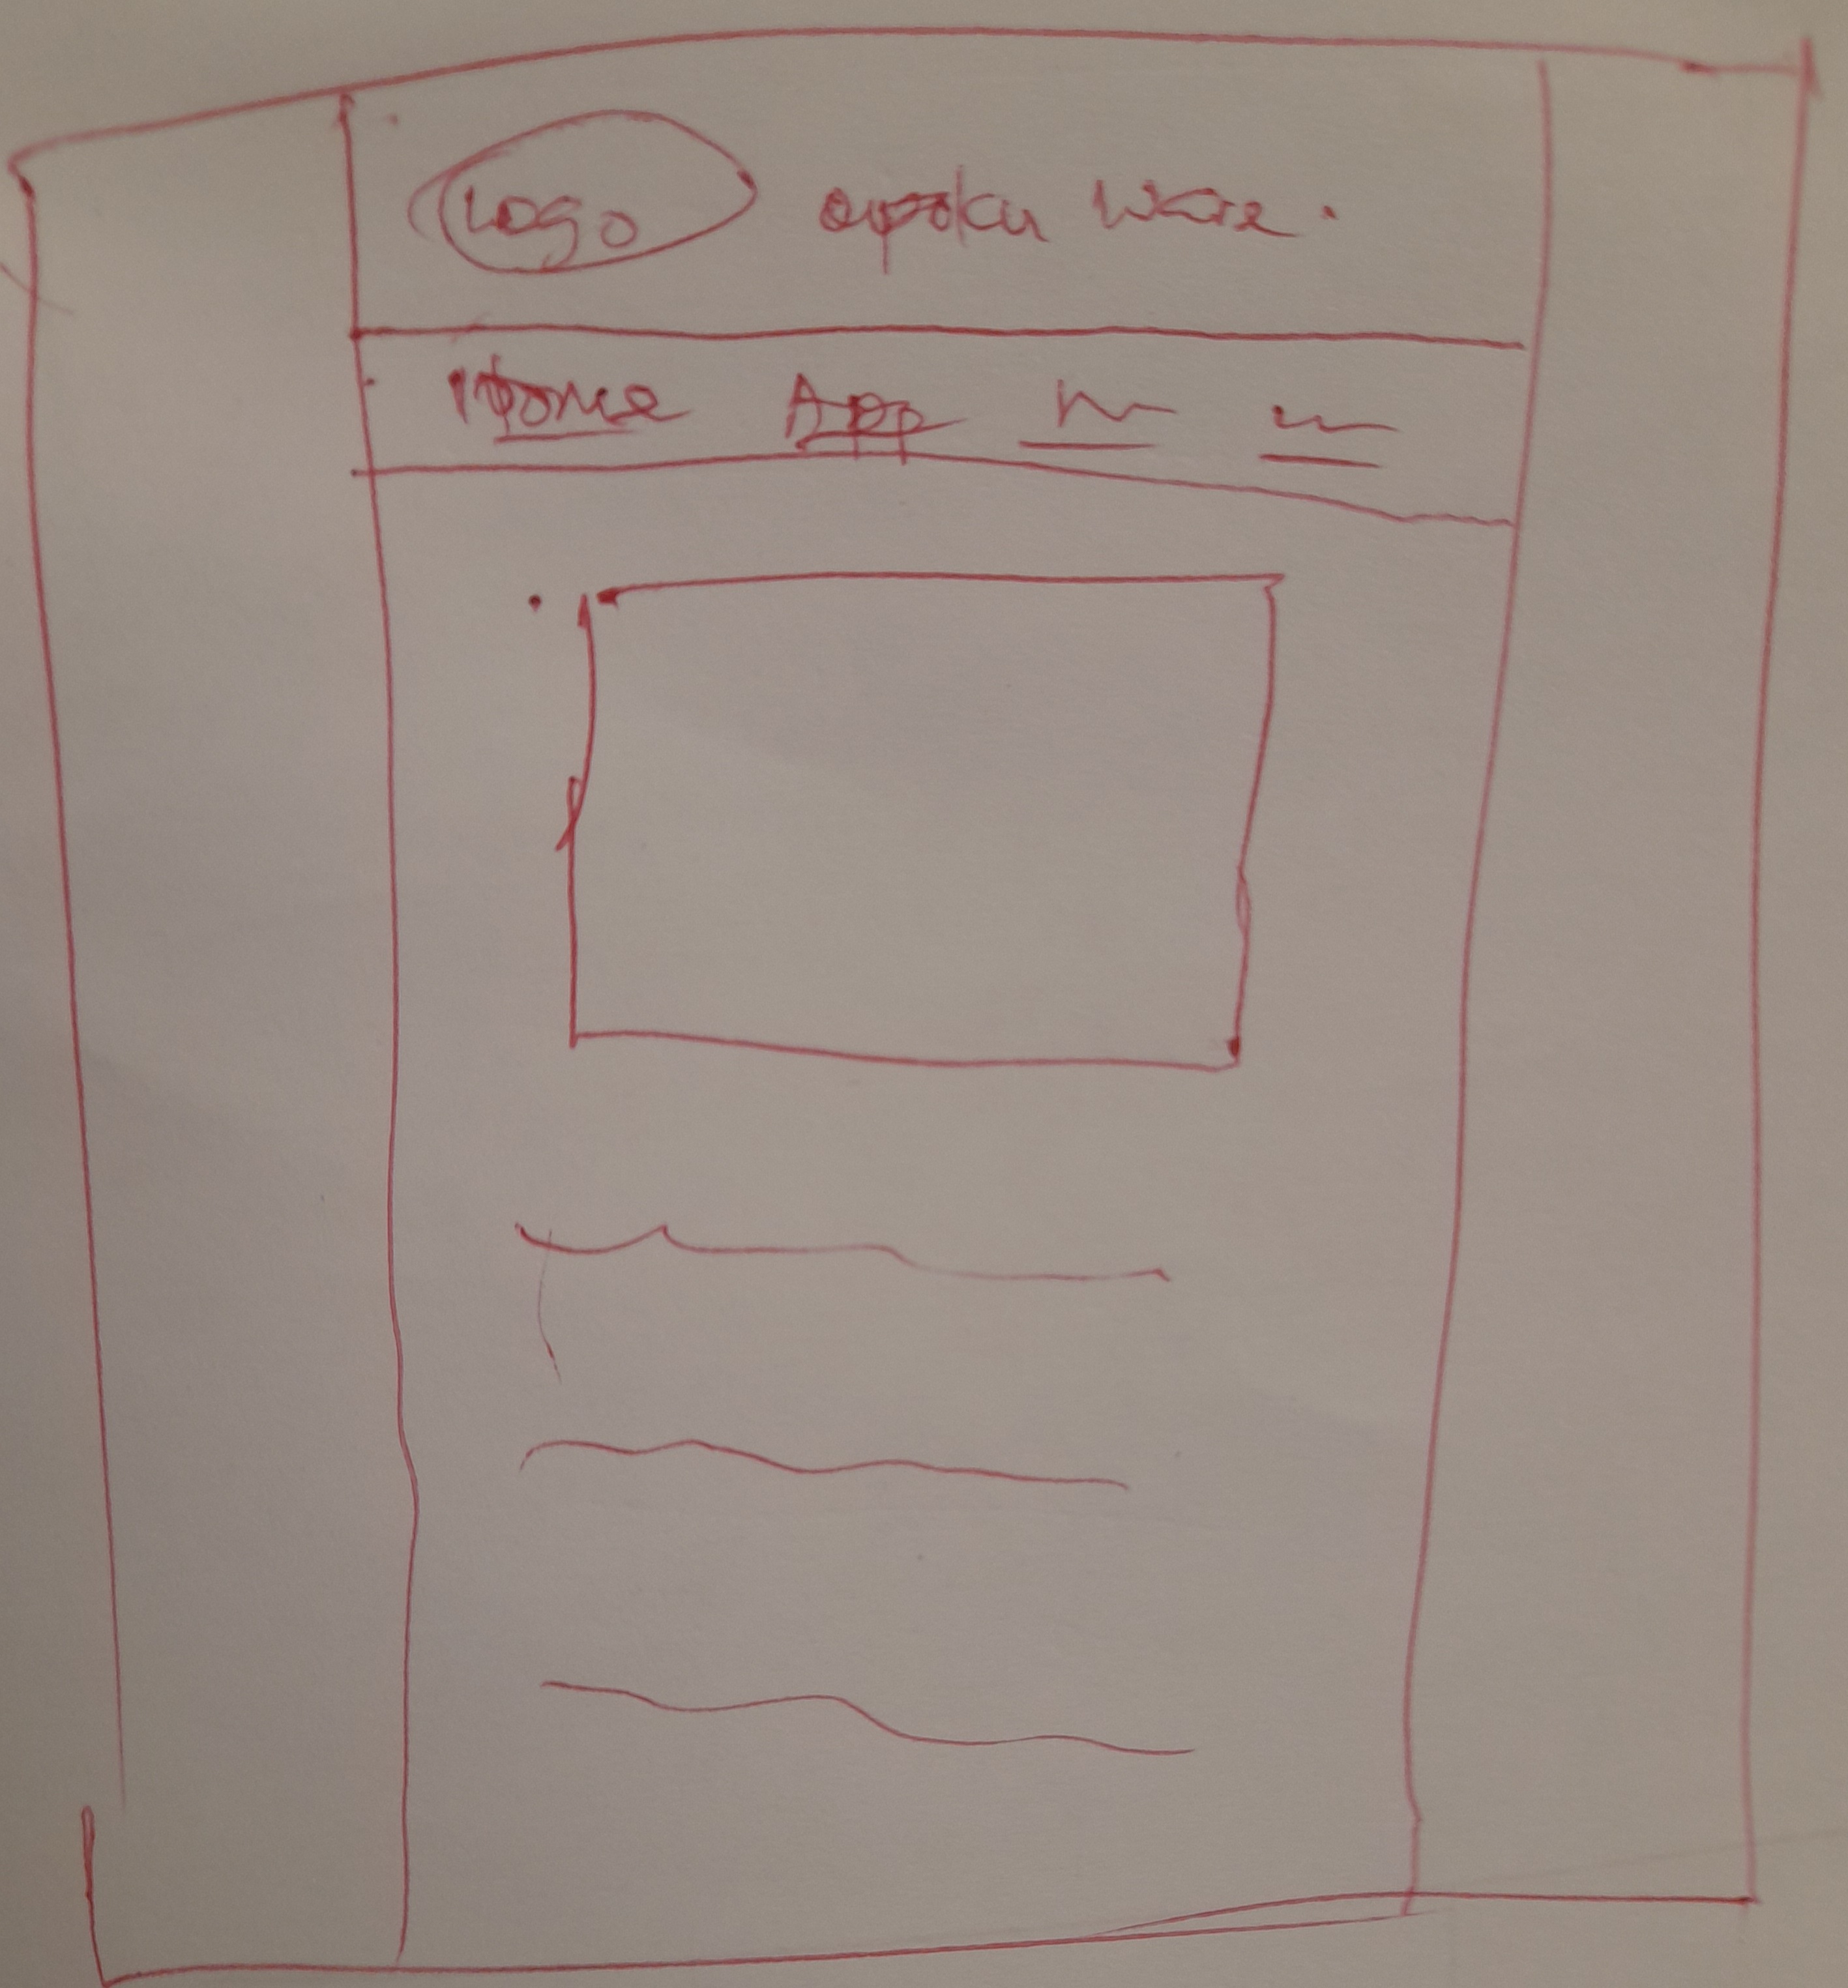 Logo opoku ware.
Home App